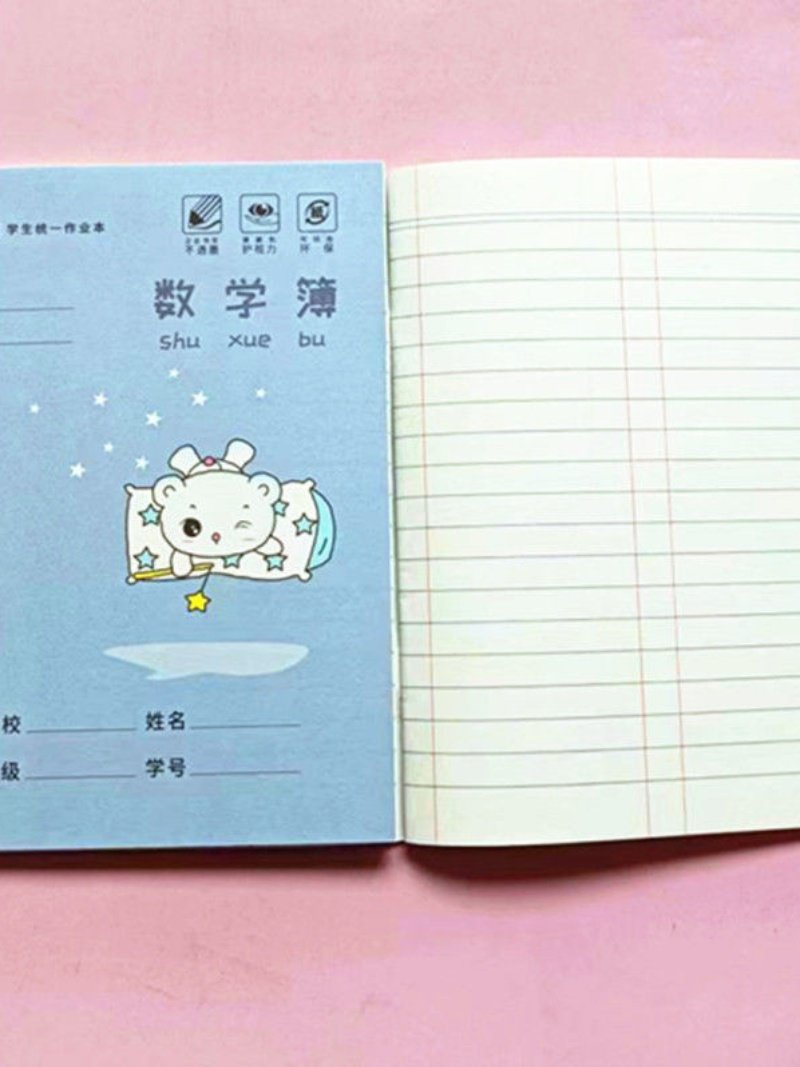 学生统一作业本
不透墨
护视力
环保
数学簿
shu xue bu
校 姓名
级 学号